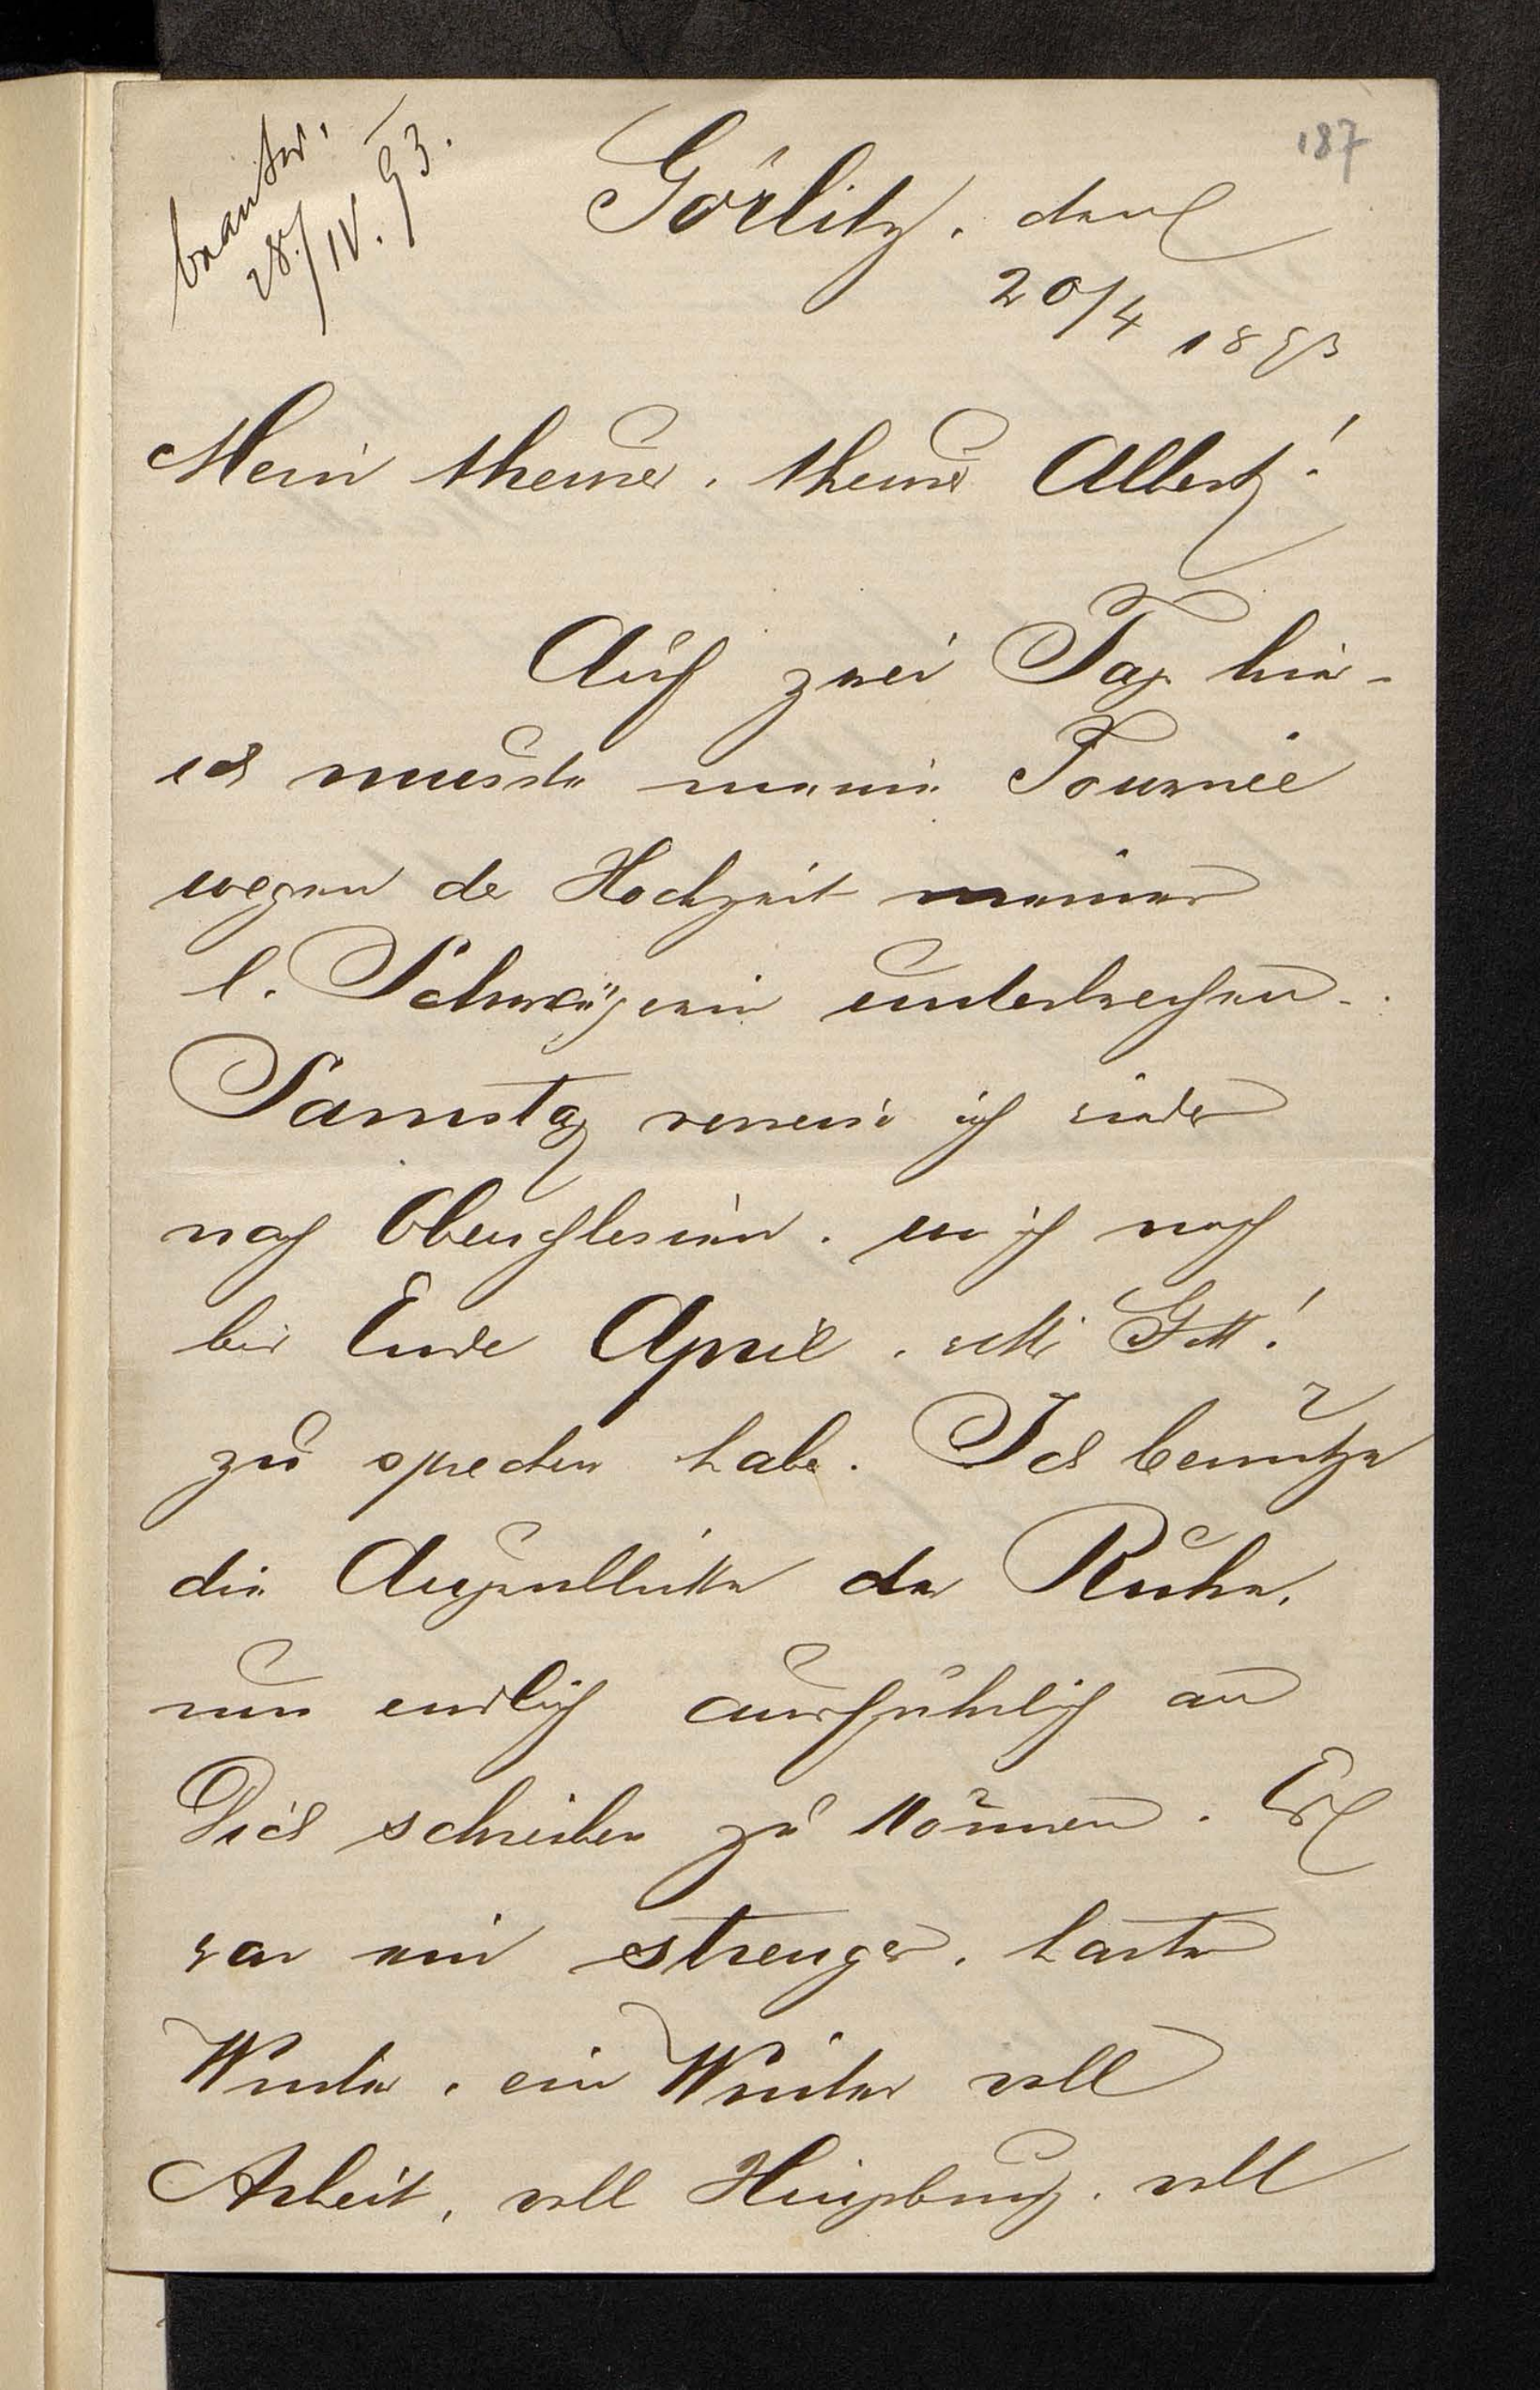 beantw.
28./IV. 93.
187
Görlitz, den
20/4 1893
Mein theurer, theurer Albert!
Auf zwei Tage hier -
ich musste meine Tournée
wegen der Hochzeit meiner
l. Schwägerin unterbrechen -
Samstag verreise ich wieder
nach Oberschlesien, wo ich noch
bis Ende April, walte Gott!
zu sprechen habe. Ich benutze
die Augenblicke der Ruhe,
um endlich ausführlich an
Dich schreiben zu können. Es
war ein strenger, harter
Winter, ein Winter voll
Arbeit, voll Hingebung, voll